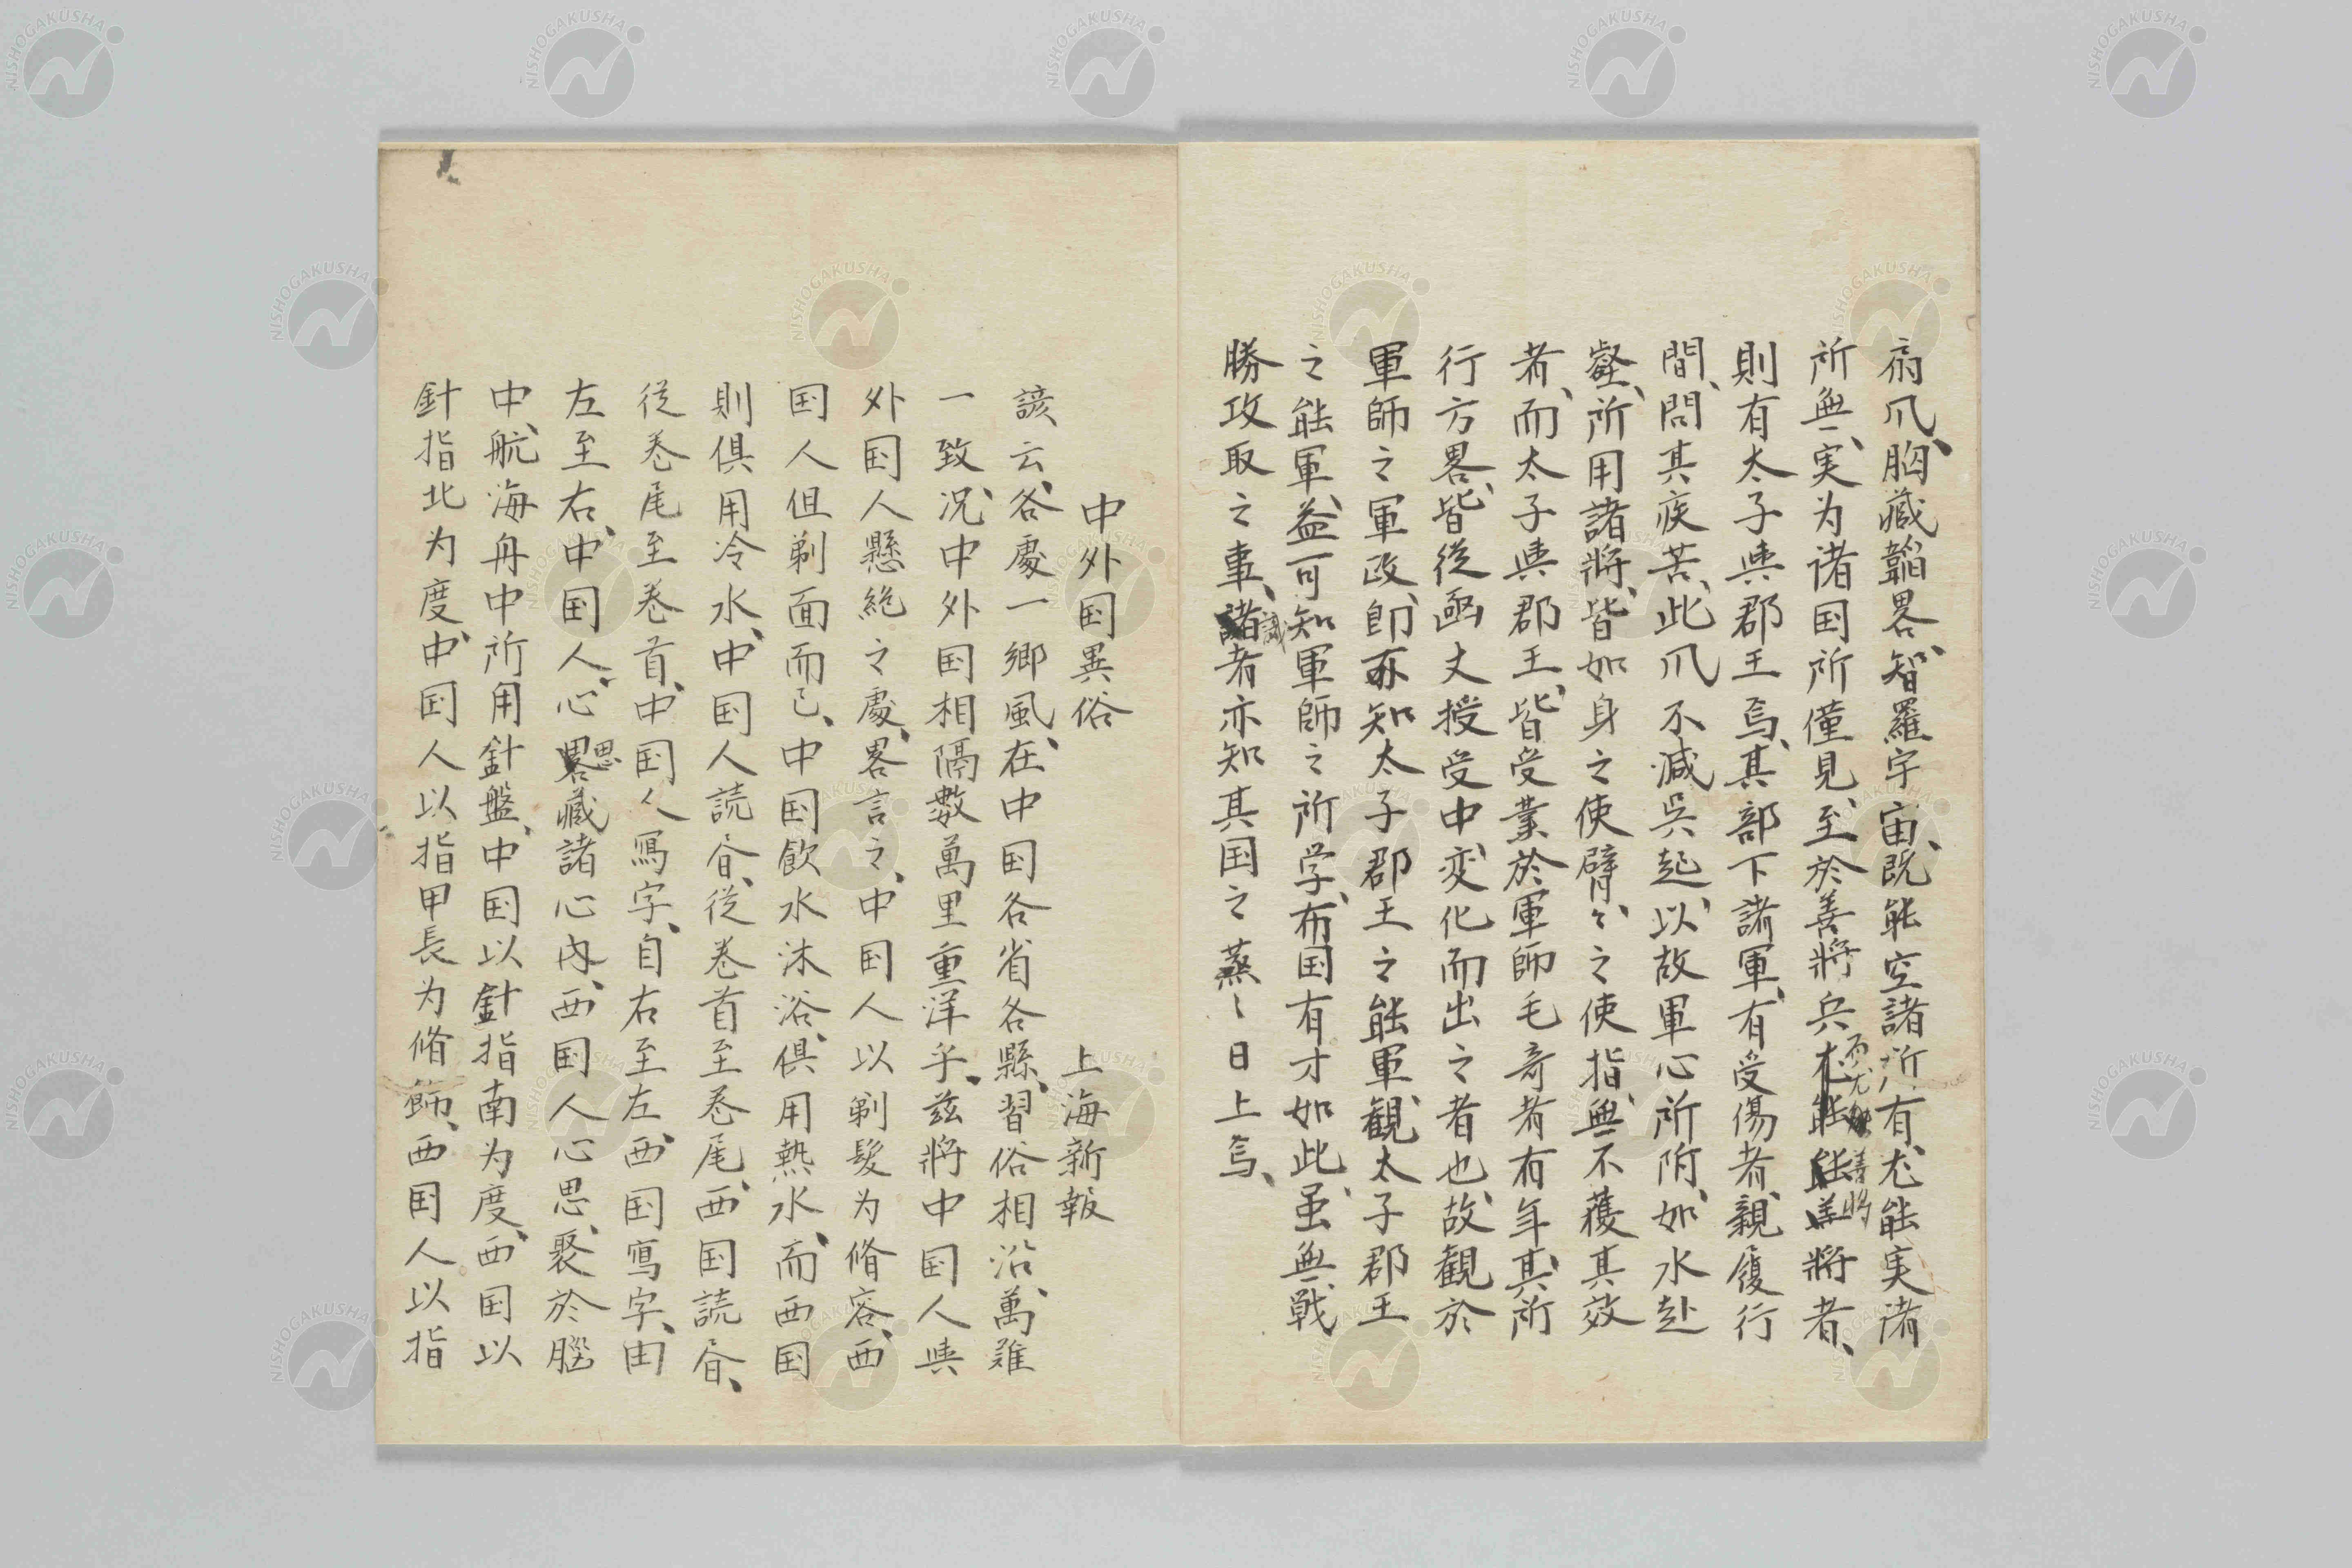 爪、胸藏韜畧、智羅宇宙、既能空諸所有、尤能実諸
所無、実为诸国所僅見、至於善將兵而尤善將將者、
則有太子與郡王焉、其部下諸軍、有受傷者、親履行
間、問其疾苦、此爪不減呉起、以故軍心所附、如水赴
壑、所用諸將、皆如身之使臂、々之使指、無不獲其效
者、而太子與郡王、皆受業於軍師毛奇者有年、其所
行方畧、皆從函丈授受中、変化而出之者也、故観於
軍師之軍政、即亦知太子郡王之能軍、観太子郡王
之能軍、益可知軍師之所学、布国有才如此、虽無戦
勝攻取之事、識者亦知其国之蒸々日上焉、
中外国異俗　上海新報
諺云、各處一鄉風、在中国各省各縣、習俗相沿、萬難
一致、况中外国相隔數萬里重洋乎、兹將中国人與
外国人懸絶之處、畧言之、中国人以剃髮为脩容、西
国人但剃面而已、中国飲水沐浴、俱用熱水、而西国
則俱用冷水、中国人読昏、從巻首至巻尾、西国読昏、
從巻尾至巻首、中国人寫字、自右至左、西国寫字、由
左至右、中国人、心思藏諸心内、西国人心思、聚於腦
中、航海舟中所用針盤、中国以針指南为度、西国以
針指北为度、中国人以指甲長为脩飾、西国人以指